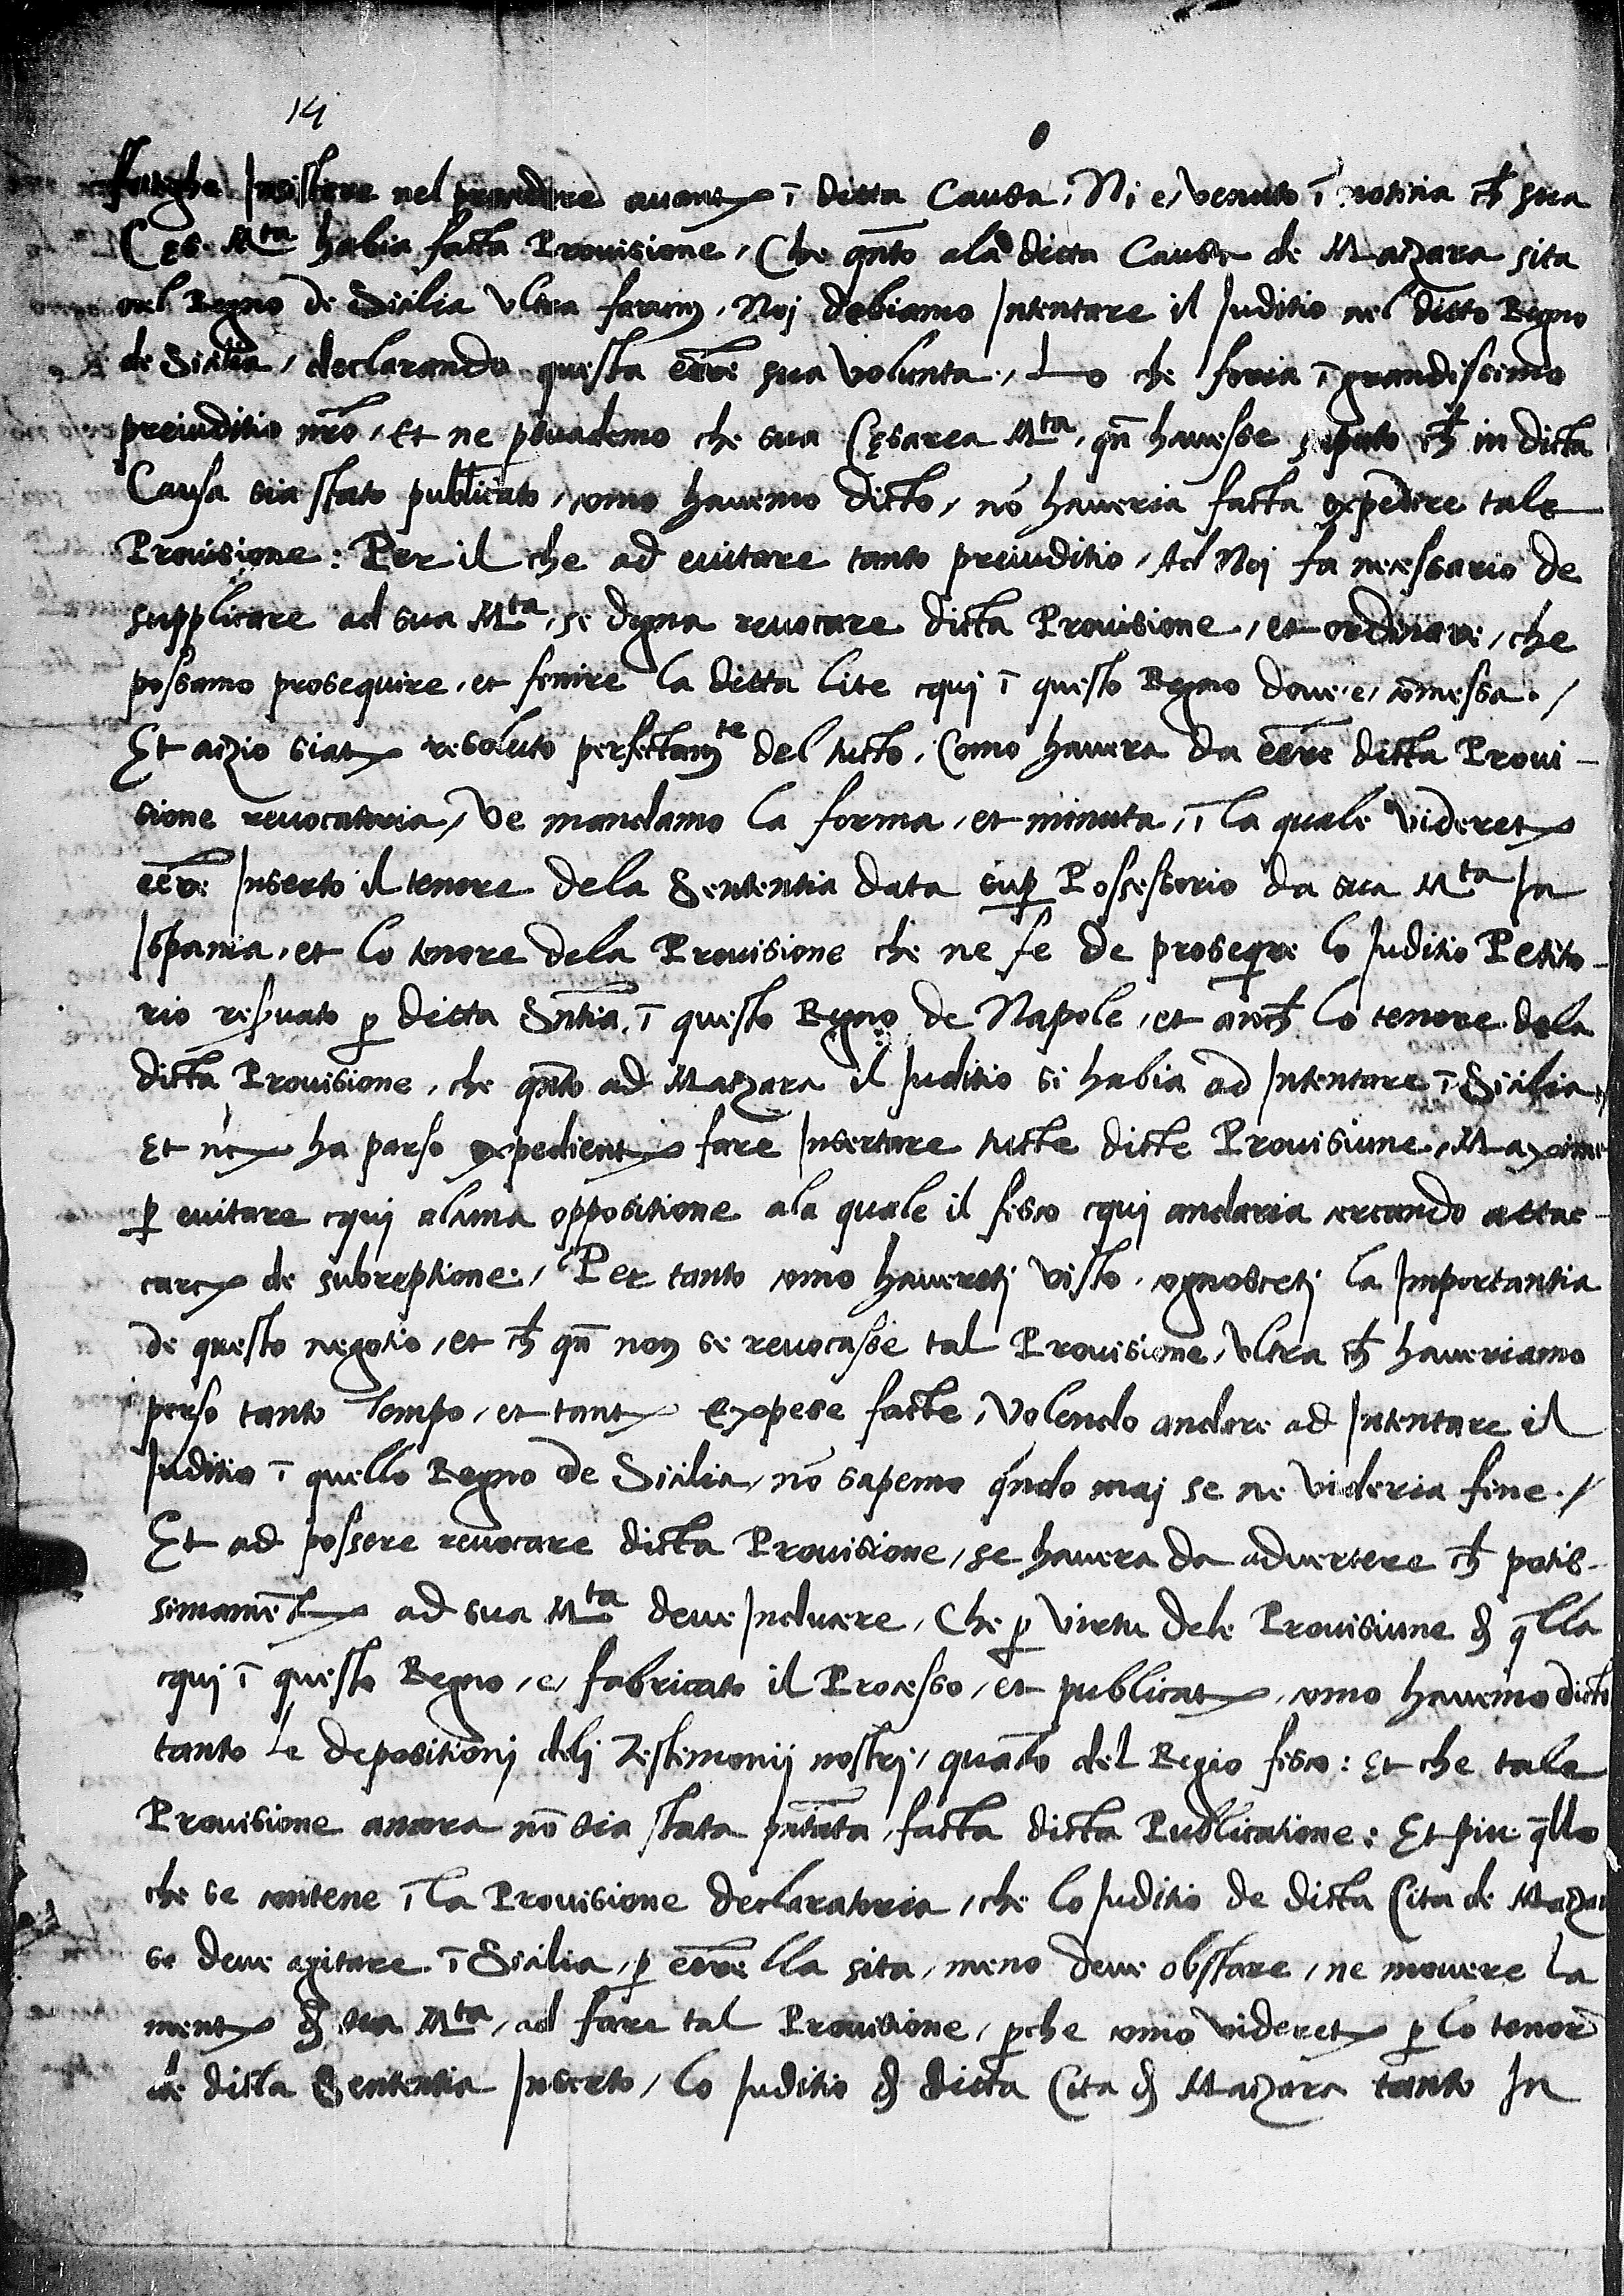 14
Insistere nel procedere auante ī ditta Causa, Ni e, venuto ī notitia ch̄ sua
Ces. Mta habia facta Prouisione, Che qn̄to ala dicta Causa de Mazara sita
nel Regno de Sicilia Vltra farum, Noj debiamo Intentare il Juditio nel ditto Regno
de Sicilia, declarando questa eēre sua Volunta., Lo che foria ī grandissimo
preiuditio nr̄o, Et ne psuademo che sua Cęsarea Mta, qn̄ hauesse saputo ch̄ in dicta
Causa sia stato publicato, como hauemo dicto, nō haueria facta expedire tale
Prouisione: Per il che ad euitare tanto preiuditio, Ad Noj fa necessario de
supplicare ad sua Mta, se degna reuocare dicta Prouisione, et ordinare, che
possamo prosequire, et fenire la ditta lite cquj ī questo Regno doue e, cōmessa. /
Et azio siate resoluto perfectamte del tucto, Como hauera da eēre dicta Proui-
sione reuocatoria, Ve mandamo la forma, et minuta, ī la quale Viderete
eēre Inserto il tenore dela Sententia data sup Possessorio da sua Mta In
Ispania, et lo tenore dela Prouisione che ne fe de proseqre lo Juditio Petito-
rio resuato p ditta Sn̄tia, ī questo Regno de Napole, et anch̄ lo tenore dela
dicta Prouisione, che qn̄to ad Mazara il Juditio si habia ad Intentare ī Sicilia,
Et ne ha parso expediente fare Insertare tucte dicte Prouisiune, Maxime
p euitare cquj alcuna oppositione ala quale il fisco cquj andaria cercando attac-
care de subreptione., Per tanto como hauereti visto, cognosceti la Importantia
de questo negotio, et ch̄ qn̄ non se reuocasse tal Prouisione, Vltra ch̄ haueriamo
perso tanto Tempo, et tante expese facte, Volendo andare ad Intentare il
Juditio ī quello Regno de Sicilia, nō sapemo qn̄do maj se ne videria fine. /
Et ad possere reuocare dicta Prouisione, se hauera da aduertere ch̄ potis-
simamēte ad sua Mta deue Inducere, Che p Virtu dele Prouisiune d̄ qlla
cquj ī questo Regno, e, fabricato il Processo, et publicate, como hauemo dicto
tanto le depositionj delj Testimonij nostrj, quāto del Regio fisco: Et che tale
Prouisione ancora nō sia stata pn̄tata, facta dicta Publicatione: Et piu qllo
che se contene ī la Prouisione declaratoria, che lo Juditio de dicta Cita de Mazar
se deue agitare ī Sicilia, p eēre lla sita, meno deue obstare, ne mouere la
mente d̄ sua Mta, ad fare tal Prouisione, pche como viderete p lo tenor
de dicta Sententia Inserto, lo Juditio d̄ dicta Cita d̄ Mazara tanto In